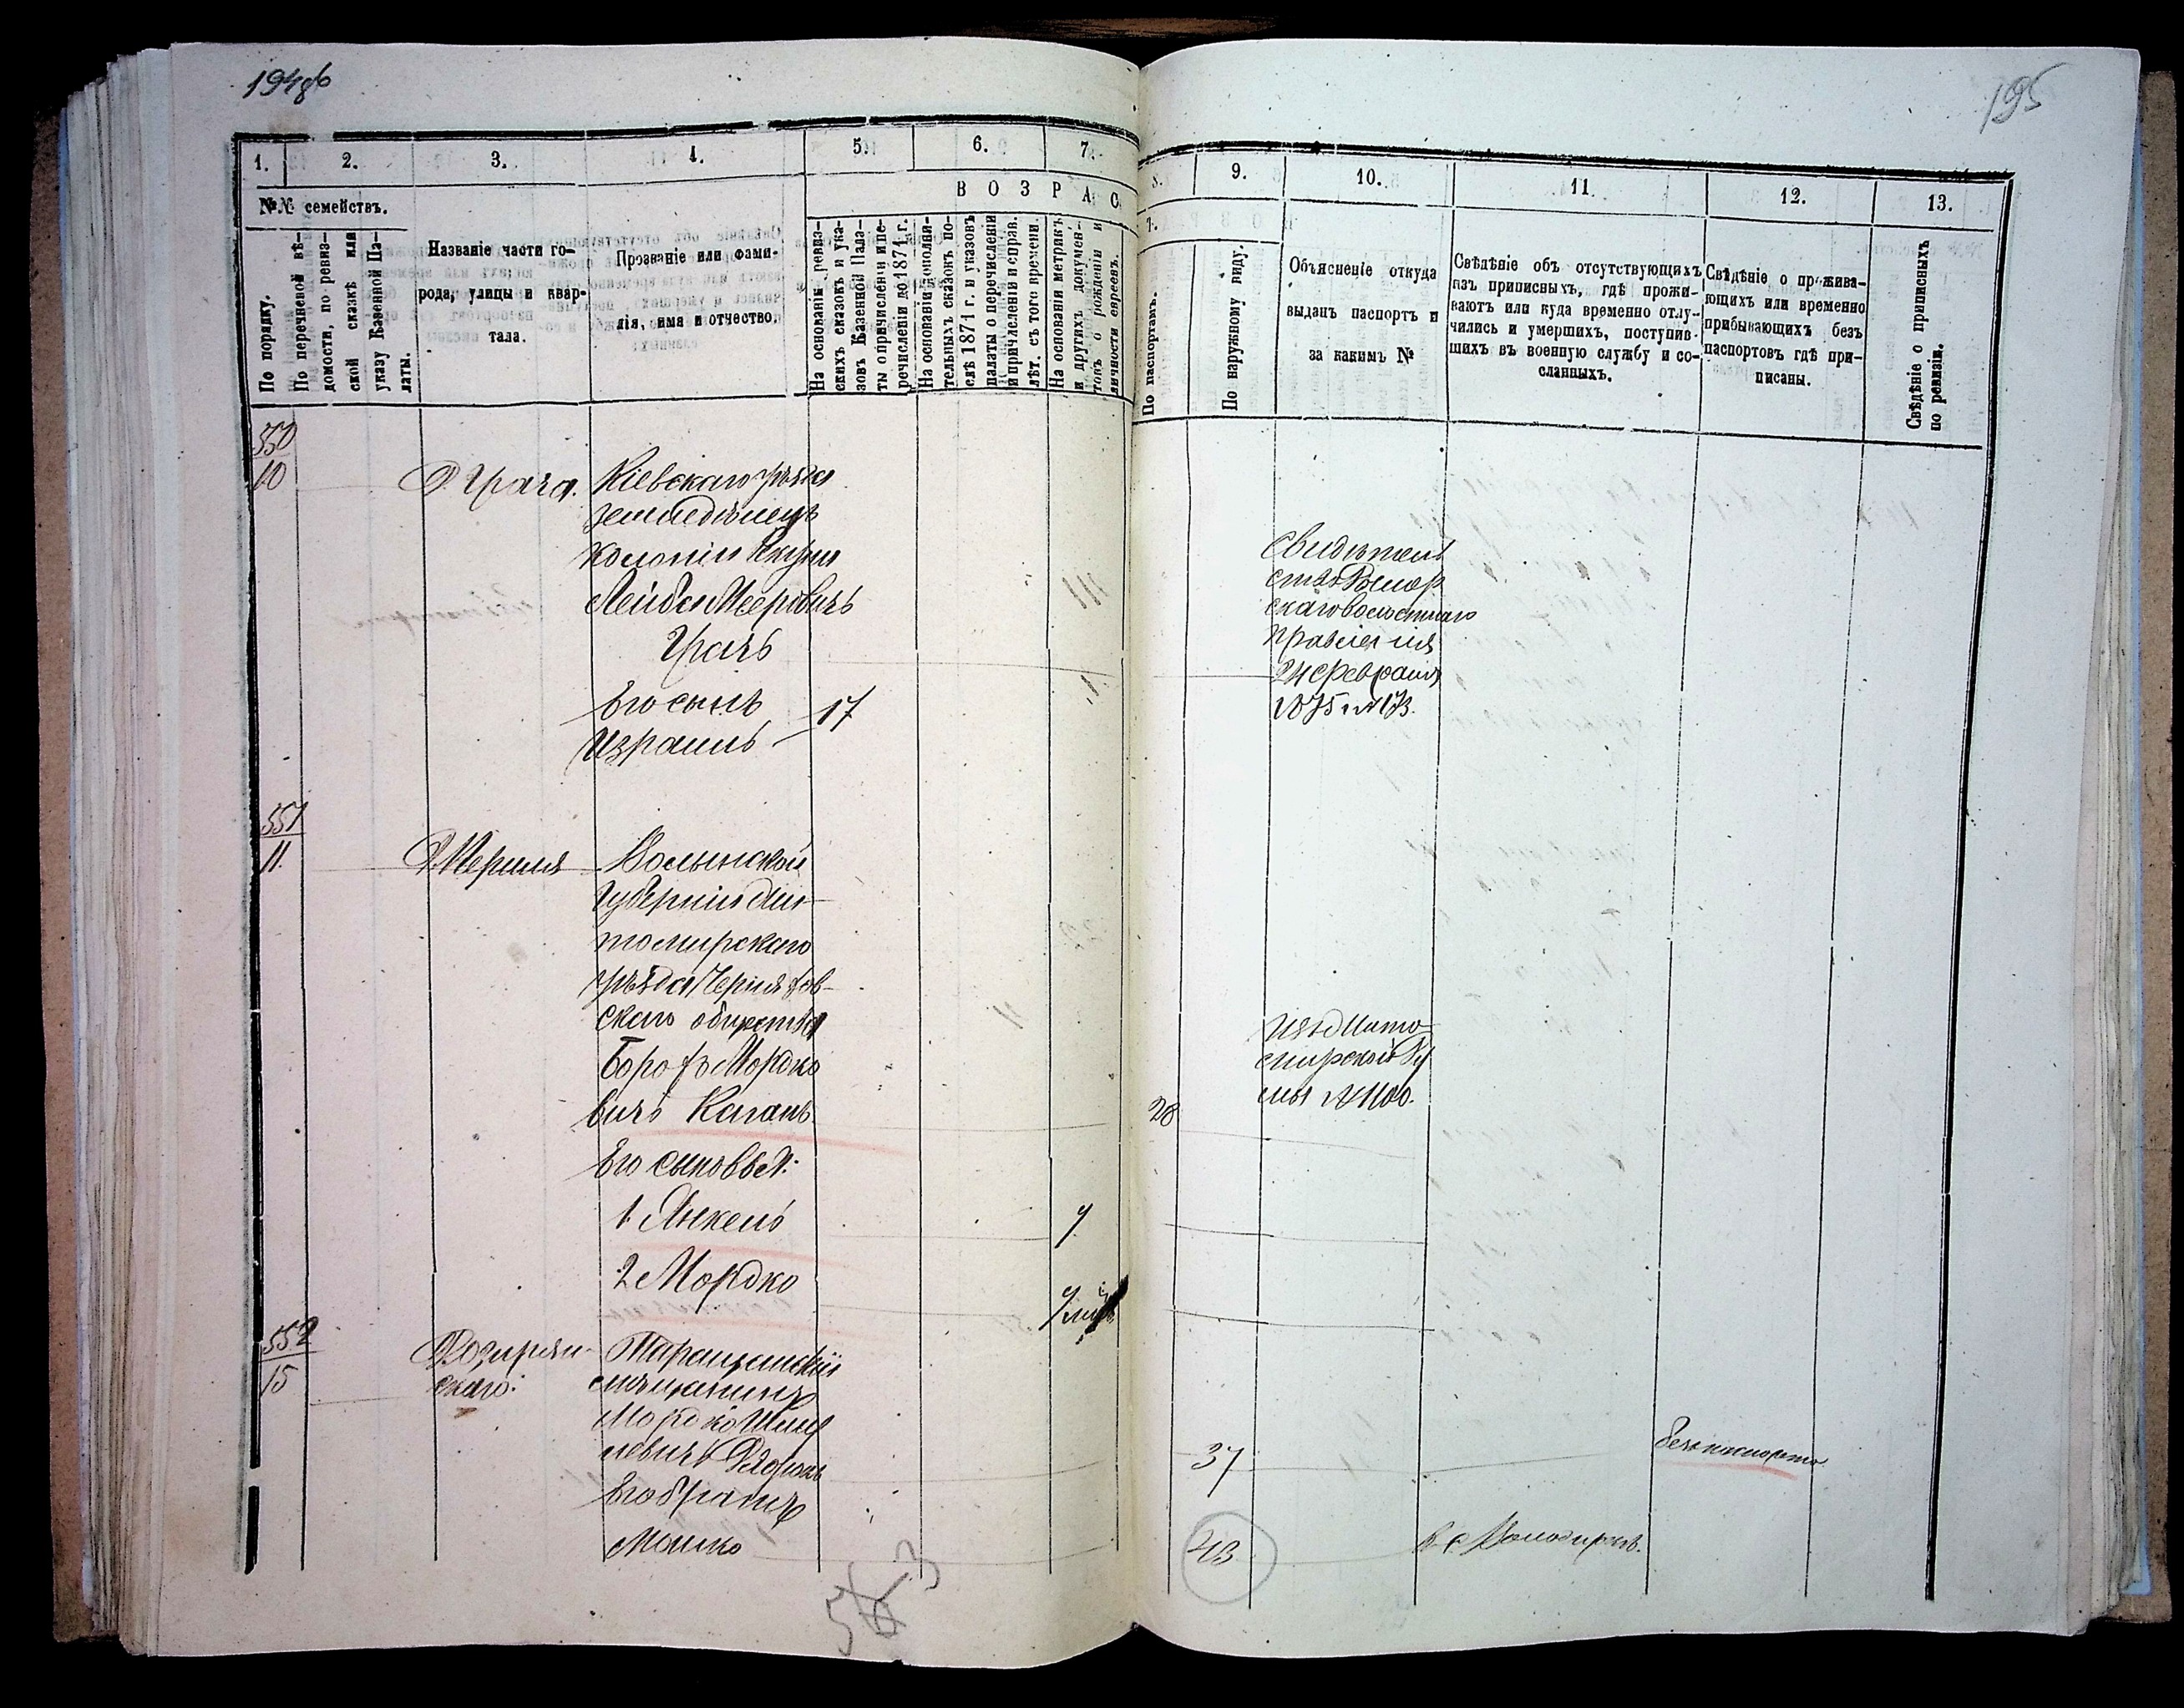 194об
195
1.
2.
3.
4.
5.
6.
7.
8.
9.
10.
11.
12.
13.
ВОЗРАС
Т.
№№ семействъ.
По порядку.
По перечневой вѣ-
домости, по ревиз-
ской сказкѣ или
указу Казенной Па-
латы.
Названіе части го-
рода, улицы и квар-
тала.
Прозваніе или фами-
лія, имя и отчество.
На основаніи ревиз-
скихъ сказокъ и ука-
зовъ Казенной Пала-
ты о причисленіи и пе-
речисленіи до 1871 г.
На основаніи дополни-
тельныхъ сказокъ по-
слѣ 1871 г. и указовъ
палаты о перечисленіи
и причисленіи и справ.
лѣт. съ того времени.
На основаніи метрикъ
и другихъ докумен-
товъ о рожденіи и
личности евреевъ.
По паспортамъ.
По наружному виду.
Объясненіе откуда
выданъ паспортъ и
за какимъ №
Свѣдѣніе объ отсутствующихъ
изъ приписныхъ, гдѣ прожи-
ваютъ или куда временно отлу-
чились и умершихъ, поступив-
шихъ въ военную службу и со-
сланныхъ.
Свѣдѣніе о прожива-
ющихъ или временно
прибывающихъ безъ
паспортовъ гдѣ при-
писаны.
Свѣдѣніе о приписныхъ
по ревизіи.
550
10
Д. Грача.
Кіевскаго уѣзда
земледѣлецъ
колоніи
Лейба Мееровичъ
Грачъ
Его сынъ
Израиль
17
Свидѣтель
ство
скаго волостнаго
правленія
24 февраля
1875 № 173.
551
11.
Волынской
Губерніи Жи-
томирскаго
уѣзда Черняхов-
скаго общества
Борохъ Мордко
вичъ Каганъ
28
изъ Жито-
мирской Ду
мы № 1100.
Его сыновья:
1. Янкель
2 Мордко
552
15
скаго:
Таращанскій
мѣщанинъ
Мордко
левичъ
37
безъ паспорта
Его братъ
Мошко
43
563